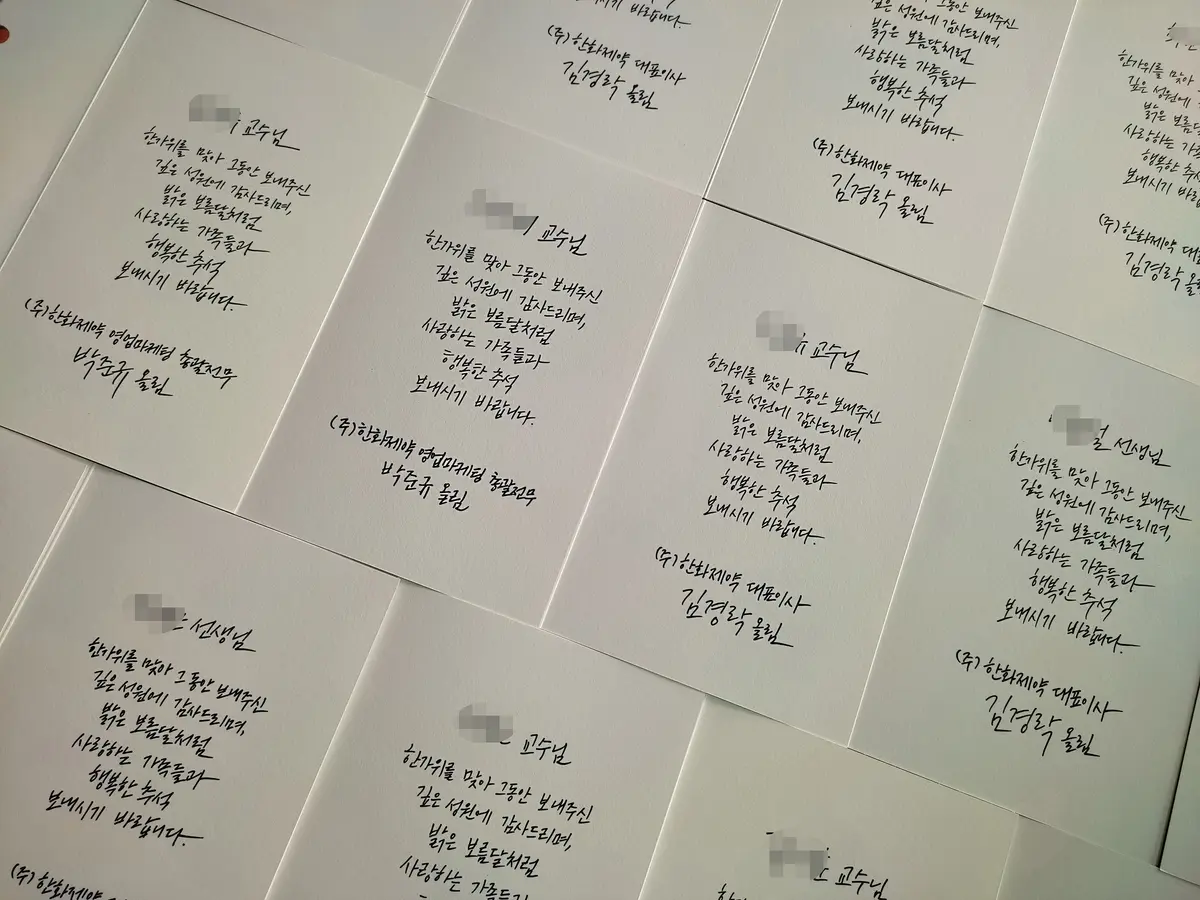 보내시기 바랍니다.
(주)한화제약 대표이사
김경락 올림
깊은 성원에 감사드리며,
밝은 보름달처럼
사랑하는 가족들과
행복한 추석
보내시기 바랍니다.
(주)한화제약 대표이사
김경락 올림
한가위를 맞아
깊은 성원에
밝은
사랑하는
행복한
보내시기
(주)한화제약
김경락
교수님
한가위를 맞아 그동안 보내주신
깊은 성원에 감사드리며,
밝은 보름달처럼
사랑하는 가족들과
행복한 추석
보내시기 바랍니다.
(주)한화제약 영업마케팅 총괄전무
박준규 올림
교수님
한가위를 맞아 그동안 보내주신
깊은 성원에 감사드리며,
밝은 보름달처럼
사랑하는 가족들과
행복한 추석
보내시기 바랍니다.
(주)한화제약 영업마케팅 총괄전무
박준규 올림
교수님
한가위를 맞아 그동안 보내주신
깊은 성원에 감사드리며,
밝은 보름달처럼
사랑하는 가족들과
행복한 추석
보내시기 바랍니다.
(주)한화제약 대표이사
김경락 올림
선생님
한가위를 맞아 그동안 보내주신
깊은 성원에 감사드리며,
밝은 보름달처럼
사랑하는 가족들과
행복한 추석
보내시기 바랍니다.
(주)한화제약 대표이사
김경락 올림
선생님
한가위를 맞아 그동안 보내주신
깊은 성원에 감사드리며,
밝은 보름달처럼
사랑하는 가족들과
행복한 추석
보내시기 바랍니다.
(주)한화제약
교수님
한가위를 맞아 그동안 보내주신
깊은 성원에 감사드리며,
밝은 보름달처럼
사랑하는 가족들과
교수님